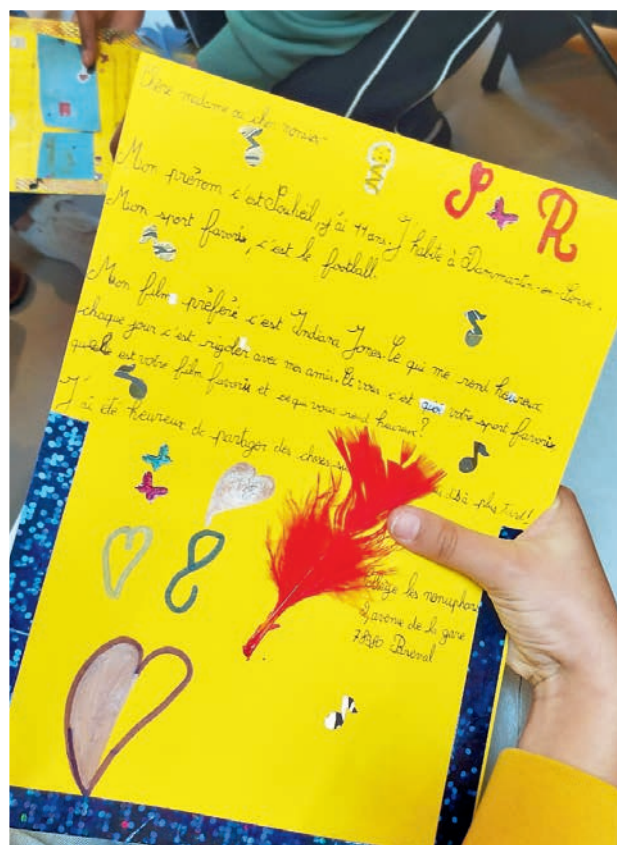 Chère madame ou cher monsier
S R
Mon prénom c'est Souheil, j'ai 11 ans. J'habite à Dammartin-en-Serve.
Mon sport favoris, c'est le football.
Mon film préféré c'est Indiana Jones. Ce qui me rend heureux
chaque jour c'est rigoler avec mes amis. Et vous c'est quoi votre sport favoris,
quelle est votre film favoris et ce qui vous rend heureux?
J'ai été heureux de partager des choses
à plus tard!
les nenuphars
avenue de la gare
Breval